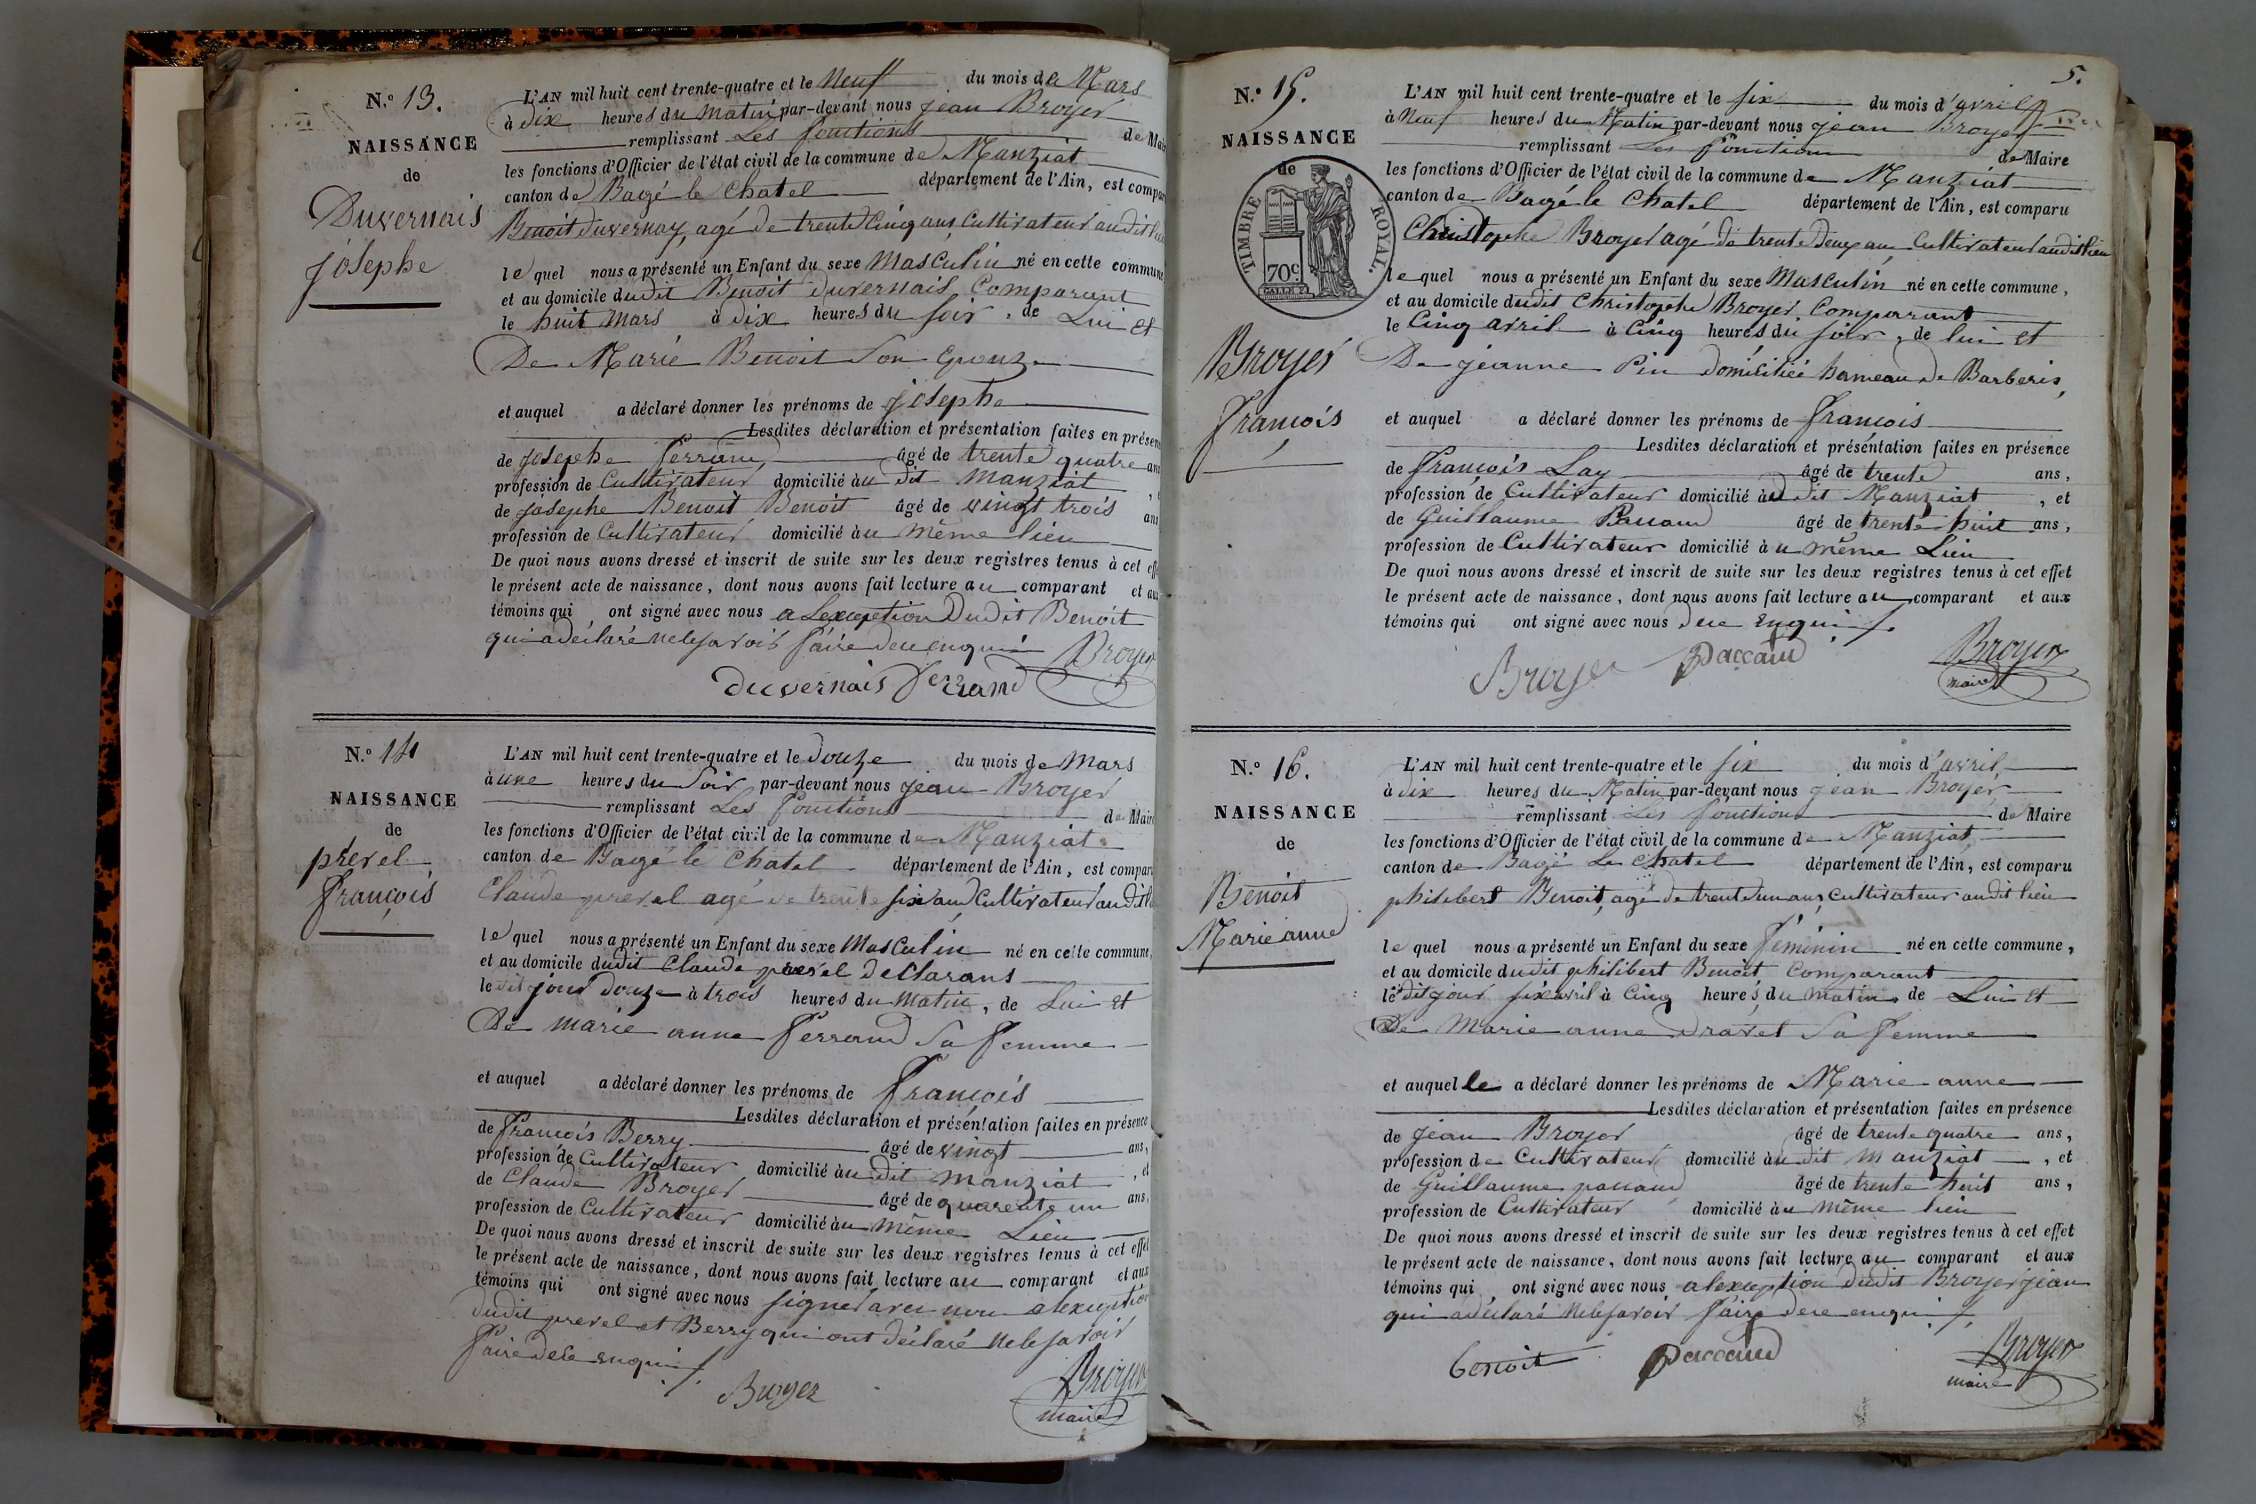 N.° 13.
NAISSANCE
de
Duvernais
josephe
L'AN mil huit cent trente-quatre et le Neuf du mois de Mars
à dix heures du matin par-devant nous jean Broyer
remplissant Les fonctions de Mair
les fonctions d'Officier de l'état civil de la commune de Manziat
canton de Bagé le chatel département de l'Ain, est compar
Benoit duvernay, agé de trente Cinq ans, Cultivateur audit lieu
le quel nous a présenté un Enfant du sexe Masculin né en cette commune
et au domicile dudit Benoit duvernais, Comparant
le huit Mars à dix heures du soir, de Lui et
De Marie Benoit Son Epouze
et auquel a déclaré donner les prénoms de josephe
Lesdites déclaration et présentation faites en présen
de josephe ferrand âgé de trente quatre ans
profession de Cultivateur domicilié au dit Manziat
de josephe Benoit Benoit âgé de vingt trois ans
profession de Cultivateur domicilié au même lieu
De quoi nous avons dressé et inscrit de suite sur les deux registres tenus à cet eff
le présent acte de naissance, dont nous avons fait lecture au comparant et au
témoins qui ont signé avec nous a Lexception Dudit Benoit
qui a déclaré ne le savoir faire de ce enquis Broyer
duvernais ferrand
N.° 14
NAISSANCE
de
prevel
françois
L'AN mil huit cent trente-quatre et le douze du mois de Mars
à une heures du Soir par-devant nous jean Broyer
remplissant Les fonctions de Mair
les fonctions d'Officier de l'état civil de la commune de Manziat
canton de Bagé le Chatel département de l'Ain, est compar
Claude prevel agé de trente six ans Cultivateur audit
le quel nous a présenté un Enfant du sexe Masculin né en cette commune,
et au domicile dudit Claude prevel declarans
le dit jour douze à trois heures du Matin, de Lui et
De marie anne ferrand Sa femme
et auquel a déclaré donner les prénoms de françois
Lesdites déclaration et présentation faites en présence
de françois Berry âgé de vingt ans,
profession de Cultivateur domicilié au dit manziat, et
de Claude Broyer âgé de quarente un ans,
profession de Cultivateur domicilié au même Lieu
De quoi nous avons dressé et inscrit de suite sur les deux registres tenus à cet effet
le présent acte de naissance, dont nous avons fait lecture au comparant et aux
témoins qui ont signé avec nous signer avec nous alexception
dudit prevel et Berry qui ont déclaré ne le savoir
faire de ce enquis
Broyer Broyer
maire
5.
N.° 15.
NAISSANCE
de
TIMBRE ROYAL.
70c.
Broyer
françois
L'AN mil huit cent trente-quatre et le six du mois d'avril
à Neuf heures du Matin par-devant nous jean Broyer
remplissant Les fonctions de Maire
les fonctions d'Officier de l'état civil de la commune de Manziat
canton de Bagé le Chatel département de l'Ain, est comparu
Christophe Broyer agé de trente deux ans, Cultivateur audit lieu
le quel nous a présenté un Enfant du sexe Masculin né en cette commune,
et au domicile dudit Christophe Broyer, Comparant
le Cinq avril à Cinq heures du soir, de lui et
De jeanne Pin domiciliée hameau de Barberis,
et auquel a déclaré donner les prénoms de françois
Lesdites déclaration et présentation faites en présence
de françois Lay âgé de trente ans,
profession de Cultivateur domicilié au dit Manziat, et
de Guillaume Passaud âgé de trente huit ans,
profession de Cultivateur domicilié au même Lieu
De quoi nous avons dressé et inscrit de suite sur les deux registres tenus à cet effet
le présent acte de naissance, dont nous avons fait lecture au comparant et aux
témoins qui ont signé avec nous de ce enquis
Broyer Paccaud Broyer
maire
N.° 16.
NAISSANCE
de
Benoit
Marie anne
L'AN mil huit cent trente-quatre et le six du mois d'avril
à dix heures du Matin par-devant nous jean Broyer
remplissant Les fonctions de Maire
les fonctions d'Officier de l'état civil de la commune de Manziat
canton de Bagé Le chatel département de l'Ain, est comparu
philibert Benoit, agé de trente un ans, cultivateur audit lieu
le quel nous a présenté un Enfant du sexe féminin né en cette commune,
et au domicile dudit philibert Benoit Comparant
le dit jour six avril à Cinq heures du matin, de Lui et
De Marie anne dravet Sa femme
et auquelle a déclaré donner les prénoms de Marie anne
Lesdites déclaration et présentation faites en présence
de jean Broyer âgé de trente quatre ans,
profession de Cultivateur domicilié au dit manziat, et
de Guillaume passaud âgé de trente huit ans,
profession de Cultivateur domicilié au même lieu
De quoi nous avons dressé et inscrit de suite sur les deux registres tenus à cet effet
le présent acte de naissance, dont nous avons fait lecture au comparant et aux
témoins qui ont signé avec nous alexception dudit Broyer jean
qui a déclaré ne le savoir faire de ce enquis
benoit paccaud Broyer
maire